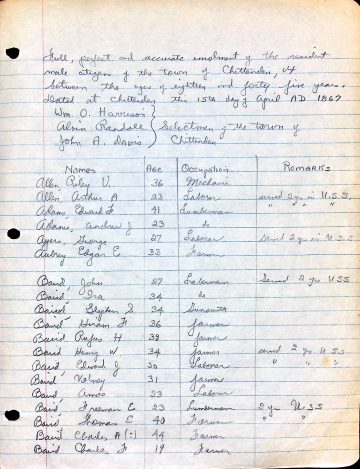 Full, perfect and accurate enrolment of the resident
male citizens of the town of Chittenden, Vt
between the ages of eighteen and forty-five years.
Dated at Chittenden this 15th day of April AD 1867
Wm. O. Harrison
Alvin Randall } Selectmen of the town of
John A. Davis Chittenden
Names Age Occupation Remarks
Allen Riley V. 36 Mechanic
Allen, Arthur A 23 Laborer served 2 yrs in U.S.S
Adams Edward F 41 Lumberman " " "
Adams, Andrew J 23 do
Ayers, George 27 Laborer served 2 yrs in U.S.S
Aubrey Edgar E 33 Farmer
Baird, John 27 Served 2 yrs USS
Baird, Ira 34 do
Baird, Stephen S 34
Baird Hiram F 36 farmer
Baird Rufus H 39 farmer
Baird Henry W 34 farmer served 2 yrs U S S
Baird, Edward J 20 Laborer " " "
Baird, 31 farmer
Baird, Amos 23 Laborer
Baird, Freeman E 23 Lumberman 2 yrs U.S.S
Baird Thomas E 40 Farmer " " "
Baird Charles A (?) 44 Farmer
Baird Charles F 19 Farmer